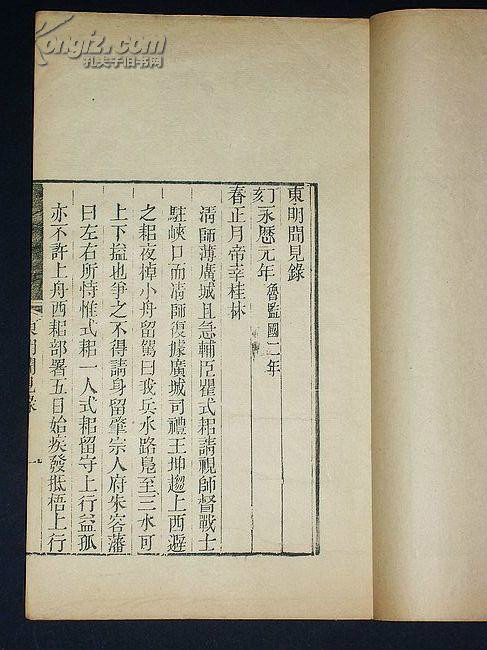 Kongfz.com
孔夫子旧书网
東明聞見錄
丁永曆元年魯監國二年
刻
春正月帝幸桂林
清師薄廣城且急輔臣瞿式耜請視師督戰士
駐峽口而清師復據廣城司禮王坤趨上西避
之耜夜掉小舟留駕曰我兵水路鳧至三水可
上下搤也爭之不得請身留肇宗人府朱容藩
曰左右所恃惟式耜一人式耜留守上行益孤
亦不許上舟西耜部署五日始疾發抵梧上行
東明聞見錄
一